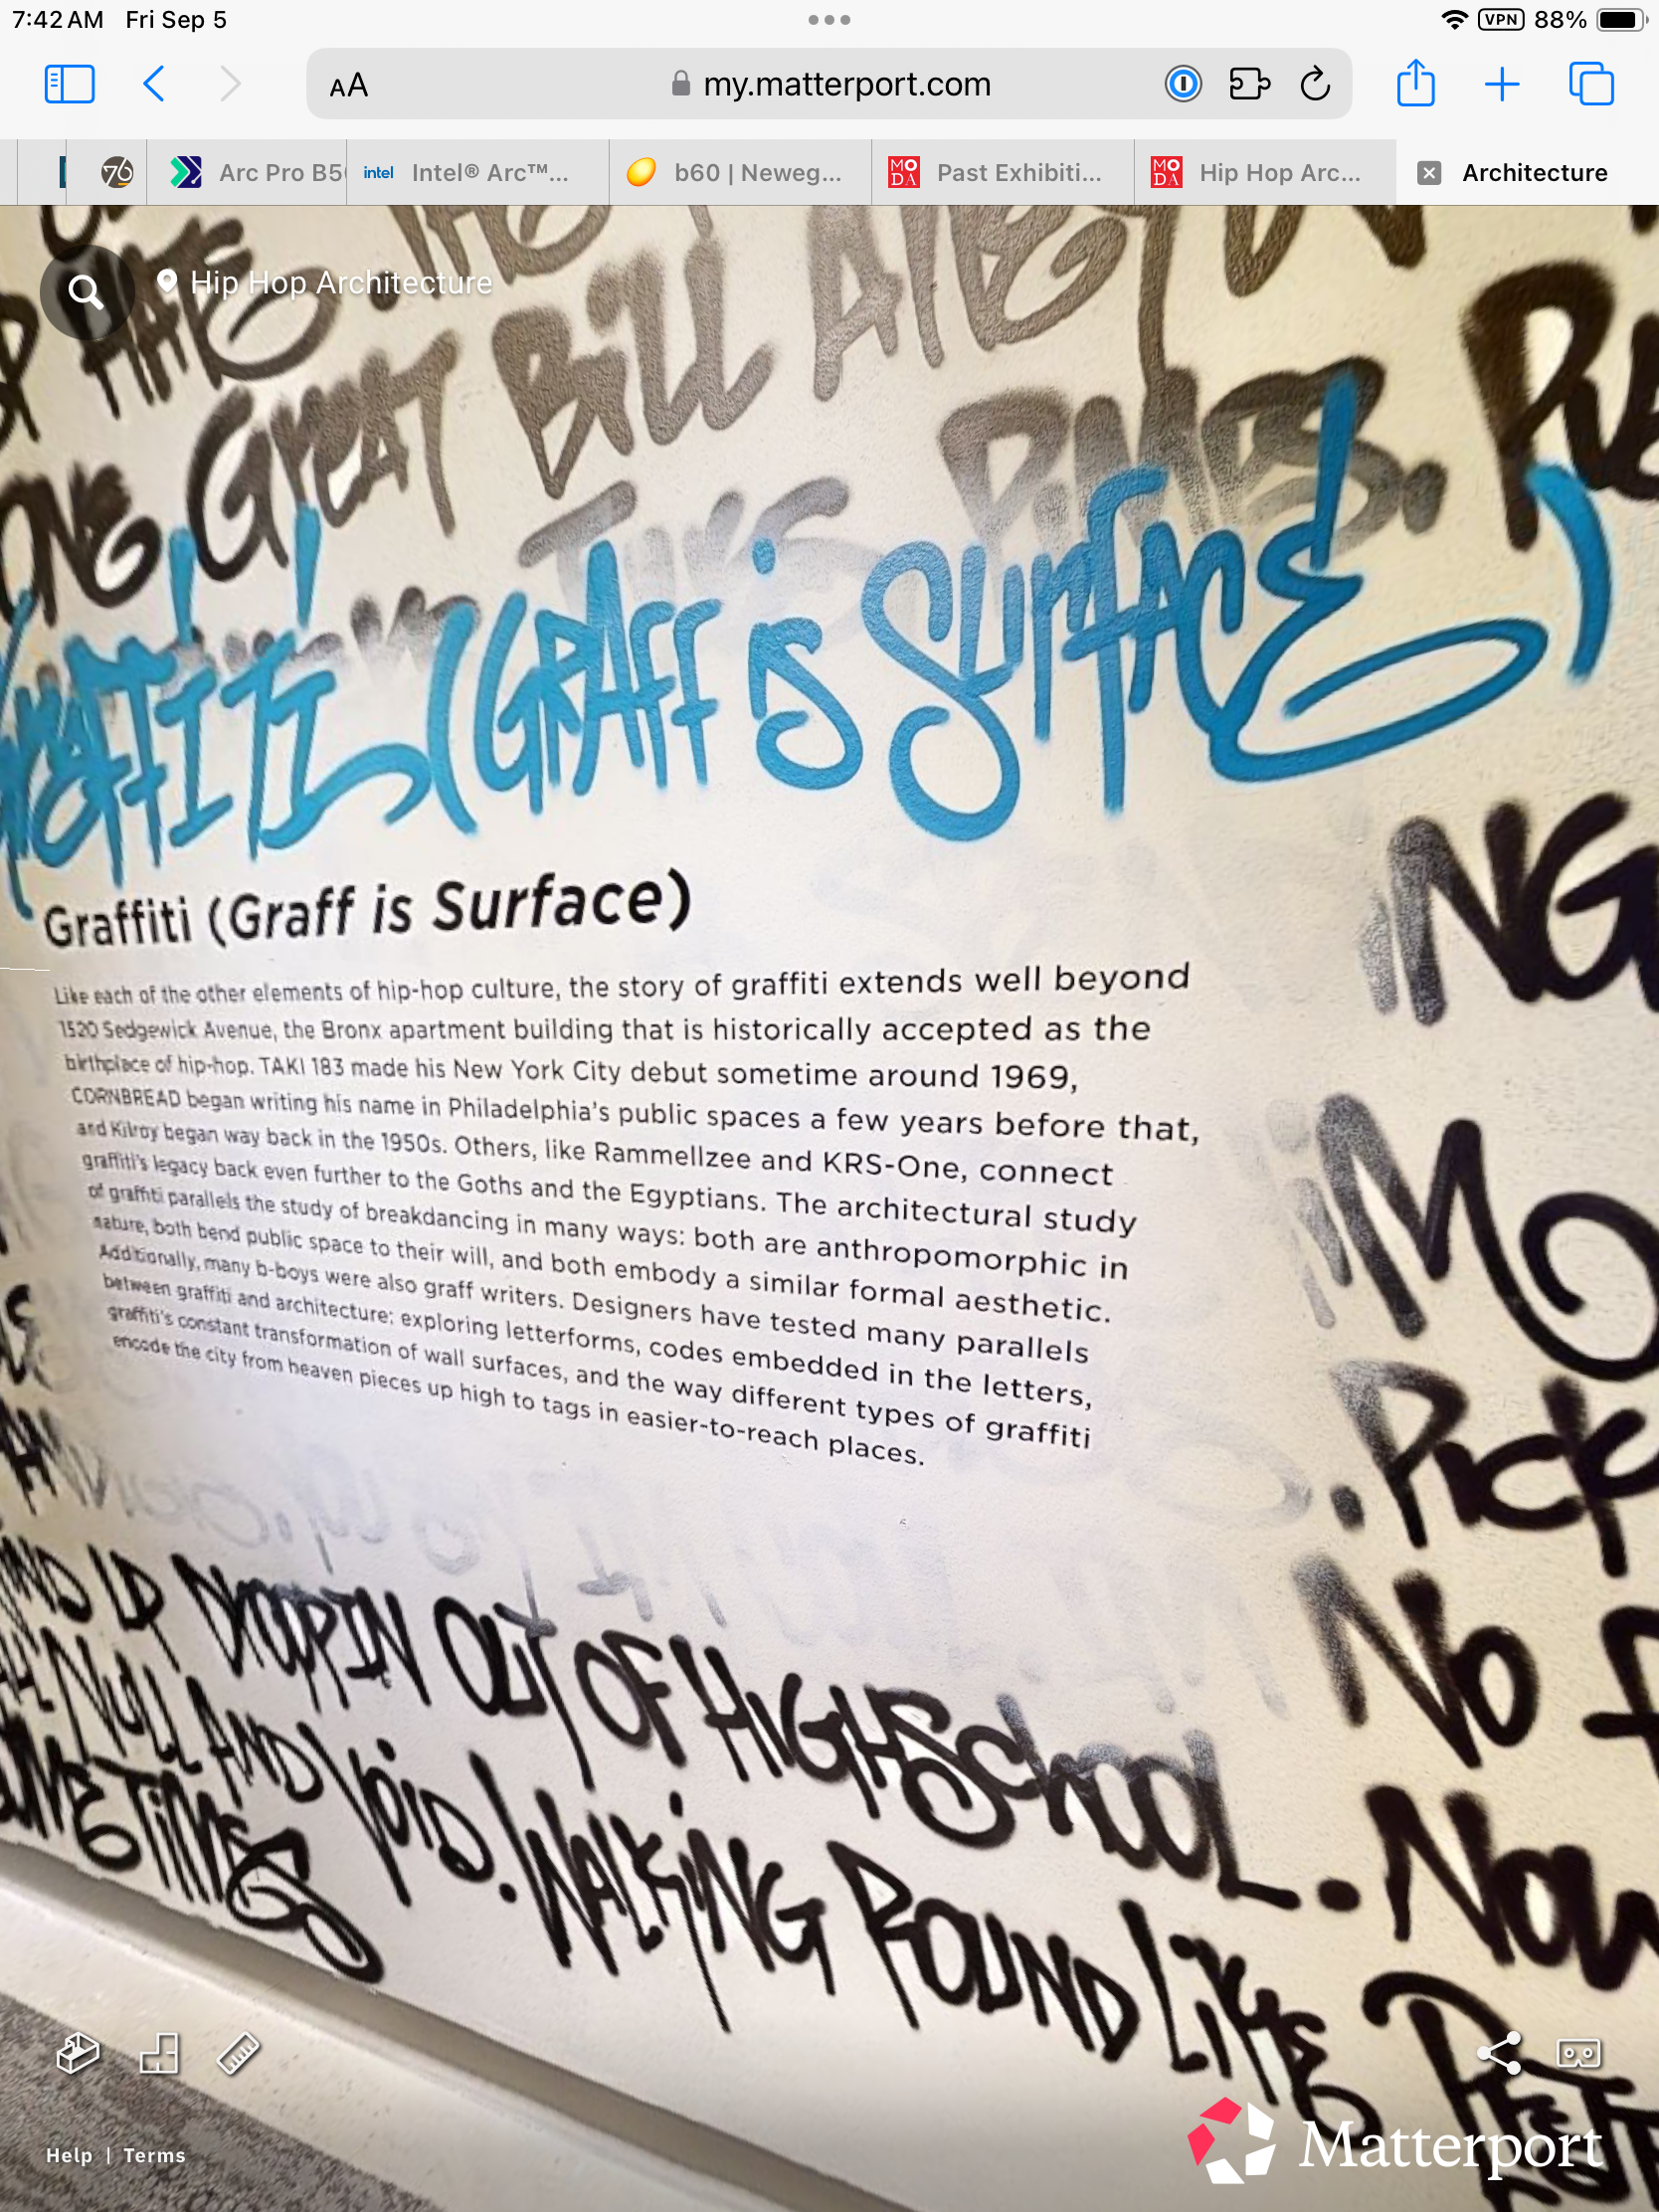 7:42 AM Fri Sep 5
VPN 88%
AA my.matterport.com
76 Arc Pro B5 intel Intel® Arc™... b60 | Neweg... MODA Past Exhibiti... MODA Hip Hop Arc... Architecture
Hip Hop Architecture
HATE
GREAT BILL
THIS RIMES.
(GRAFF is SURFACE)
Graffiti (Graff is Surface)
Like each of the other elements of hip-hop culture, the story of graffiti extends well beyond
1520 Sedgewick Avenue, the Bronx apartment building that is historically accepted as the
birthplace of hip-hop. TAKI 183 made his New York City debut sometime around 1969,
CORNBREAD began writing his name in Philadelphia's public spaces a few years before that,
and Kilroy began way back in the 1950s. Others, like Rammellzee and KRS-One, connect
graffiti's legacy back even further to the Goths and the Egyptians. The architectural study
of graffiti parallels the study of breakdancing in many ways: both are anthropomorphic in
nature, both bend public space to their will, and both embody a similar formal aesthetic.
Additionally, many b-boys were also graff writers. Designers have tested many parallels
between graffiti and architecture: exploring letterforms, codes embedded in the letters,
graffiti's constant transformation of wall surfaces, and the way different types of graffiti
encode the city from heaven pieces up high to tags in easier-to-reach places.
ING
. Pick
No
DROPPIN OUT OF HIGHSCHOOL. Now
NULL AND VOID. WALKING ROUND LIKE
TIMES
Help | Terms
Matterport